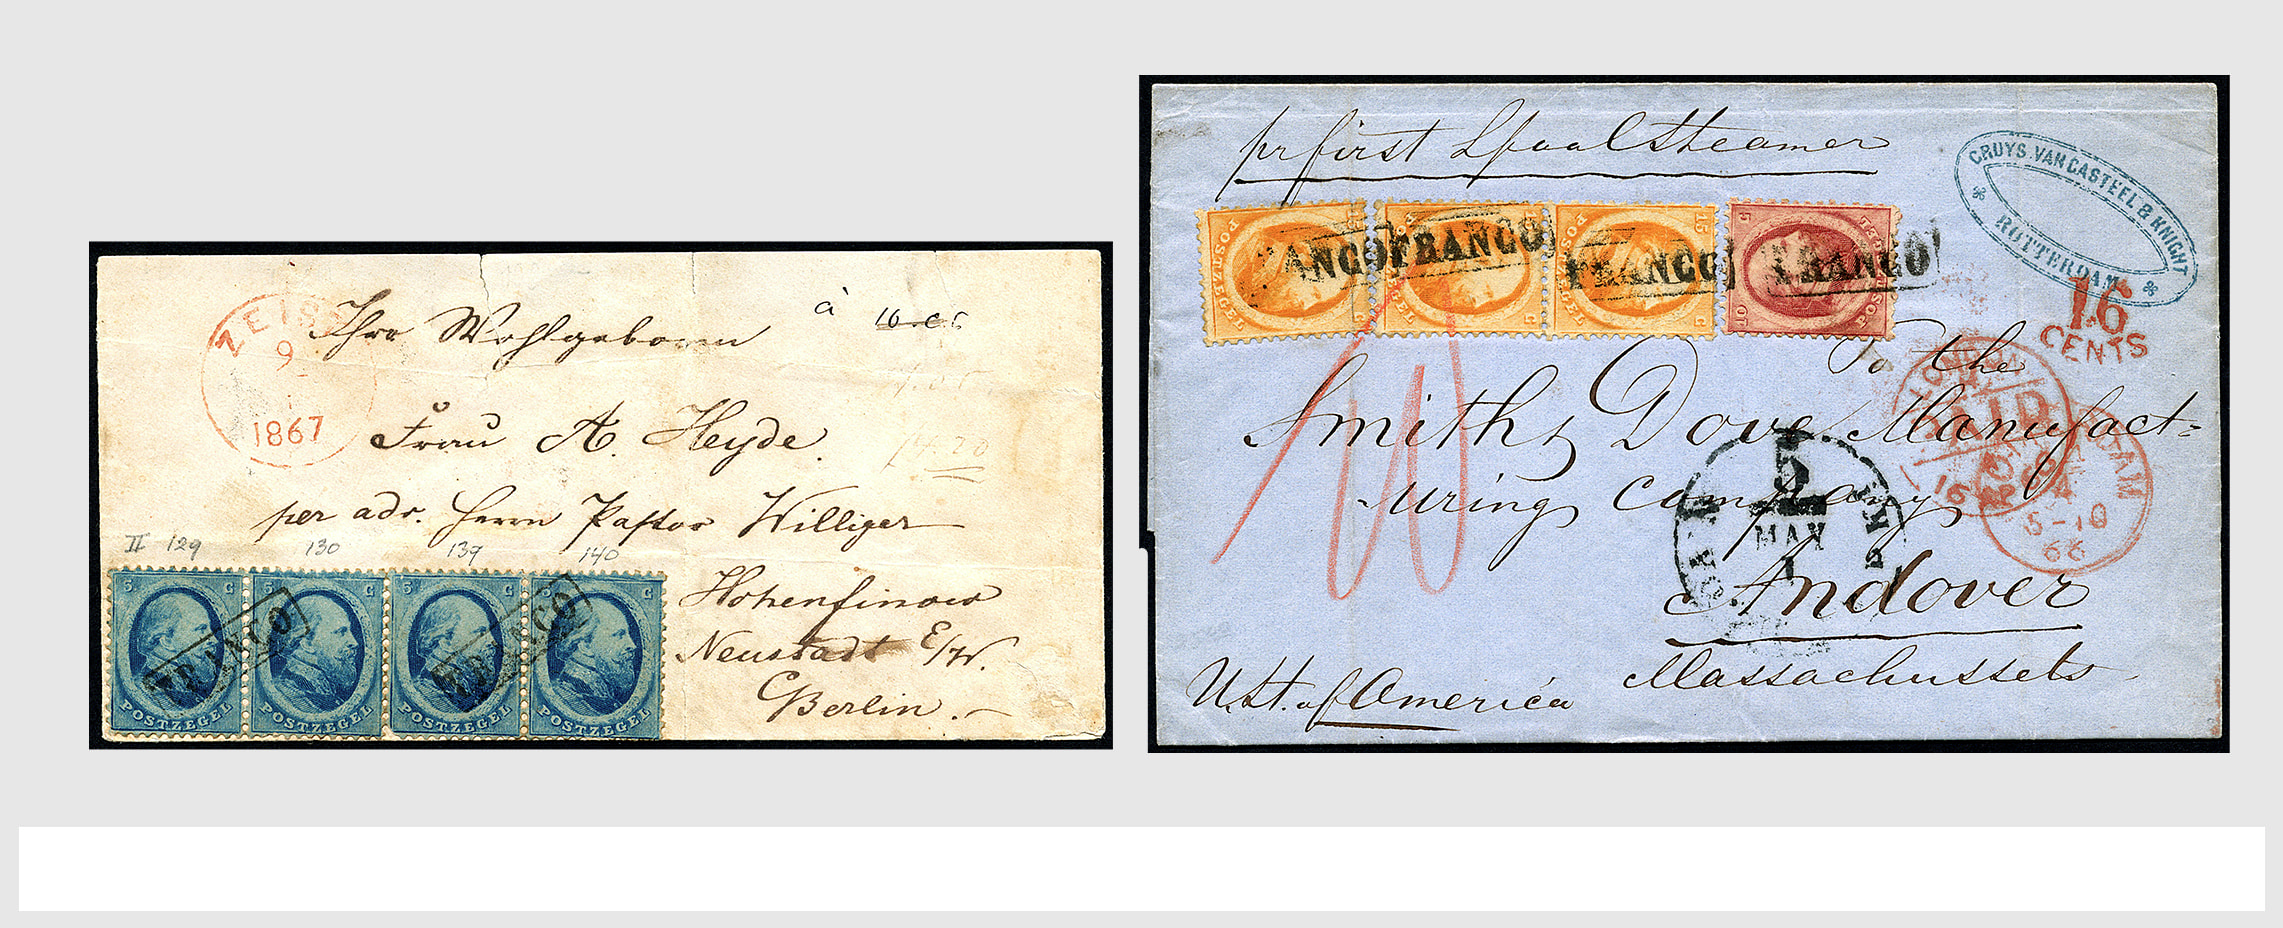 ZEIS
9
1867
Ihro Wohlgeboren
à 10 cs
Frau A. Heyde.
f 4.20
per adr. Herrn Pastor Williger
II 129 130 139 140
Hohenfinow
Neustadt E/W.
Berlin.
5 C 5 C 5 C 5 C
FRANCO FRANCO
POSTZEGEL POSTZEGEL POSTZEGEL POSTZEGEL
pr first Lpool Steamer
CRUYS VAN CASTEEL & KNIGHT
ROTTERDAM
15 C 15 C 15 C 5
POSTZEGEL POSTZEGEL POSTZEGEL POSTZEGEL
ANCO FRANCO FRANCO FRANCO
16
CENTS
To the
LONDON
PAID
Smith & Dove Manufact=
uring company
5
MAY
PKT
5-10
66
Andover
Massachussets
U. St. of America